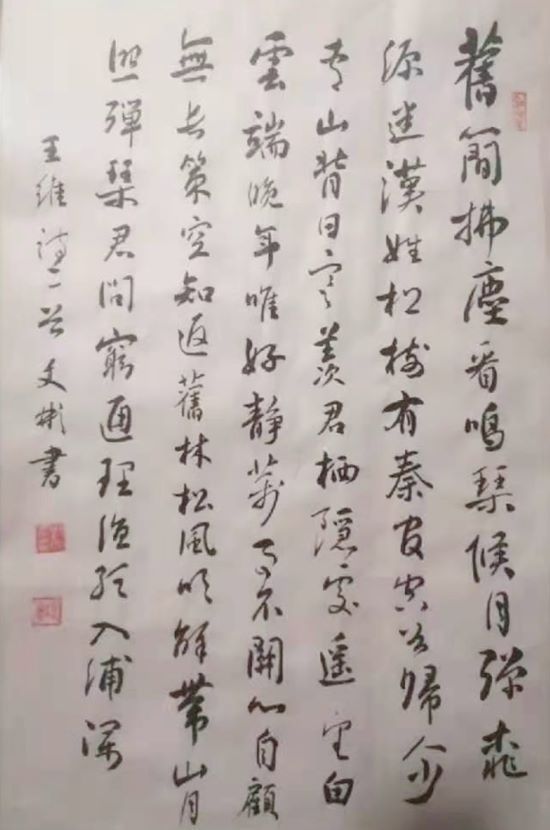 舊簡拂塵看鳴琴候月彈桃
源迷漢姓松樹有秦官空谷歸人少
青山背日寒羨君栖隱處遙望白
雲端晚年唯好靜萬事不關心自顧
無長策空知返舊林松風吹解帶山月
照彈琴君問窮通理漁歌入浦深
王維詩二首文彬書